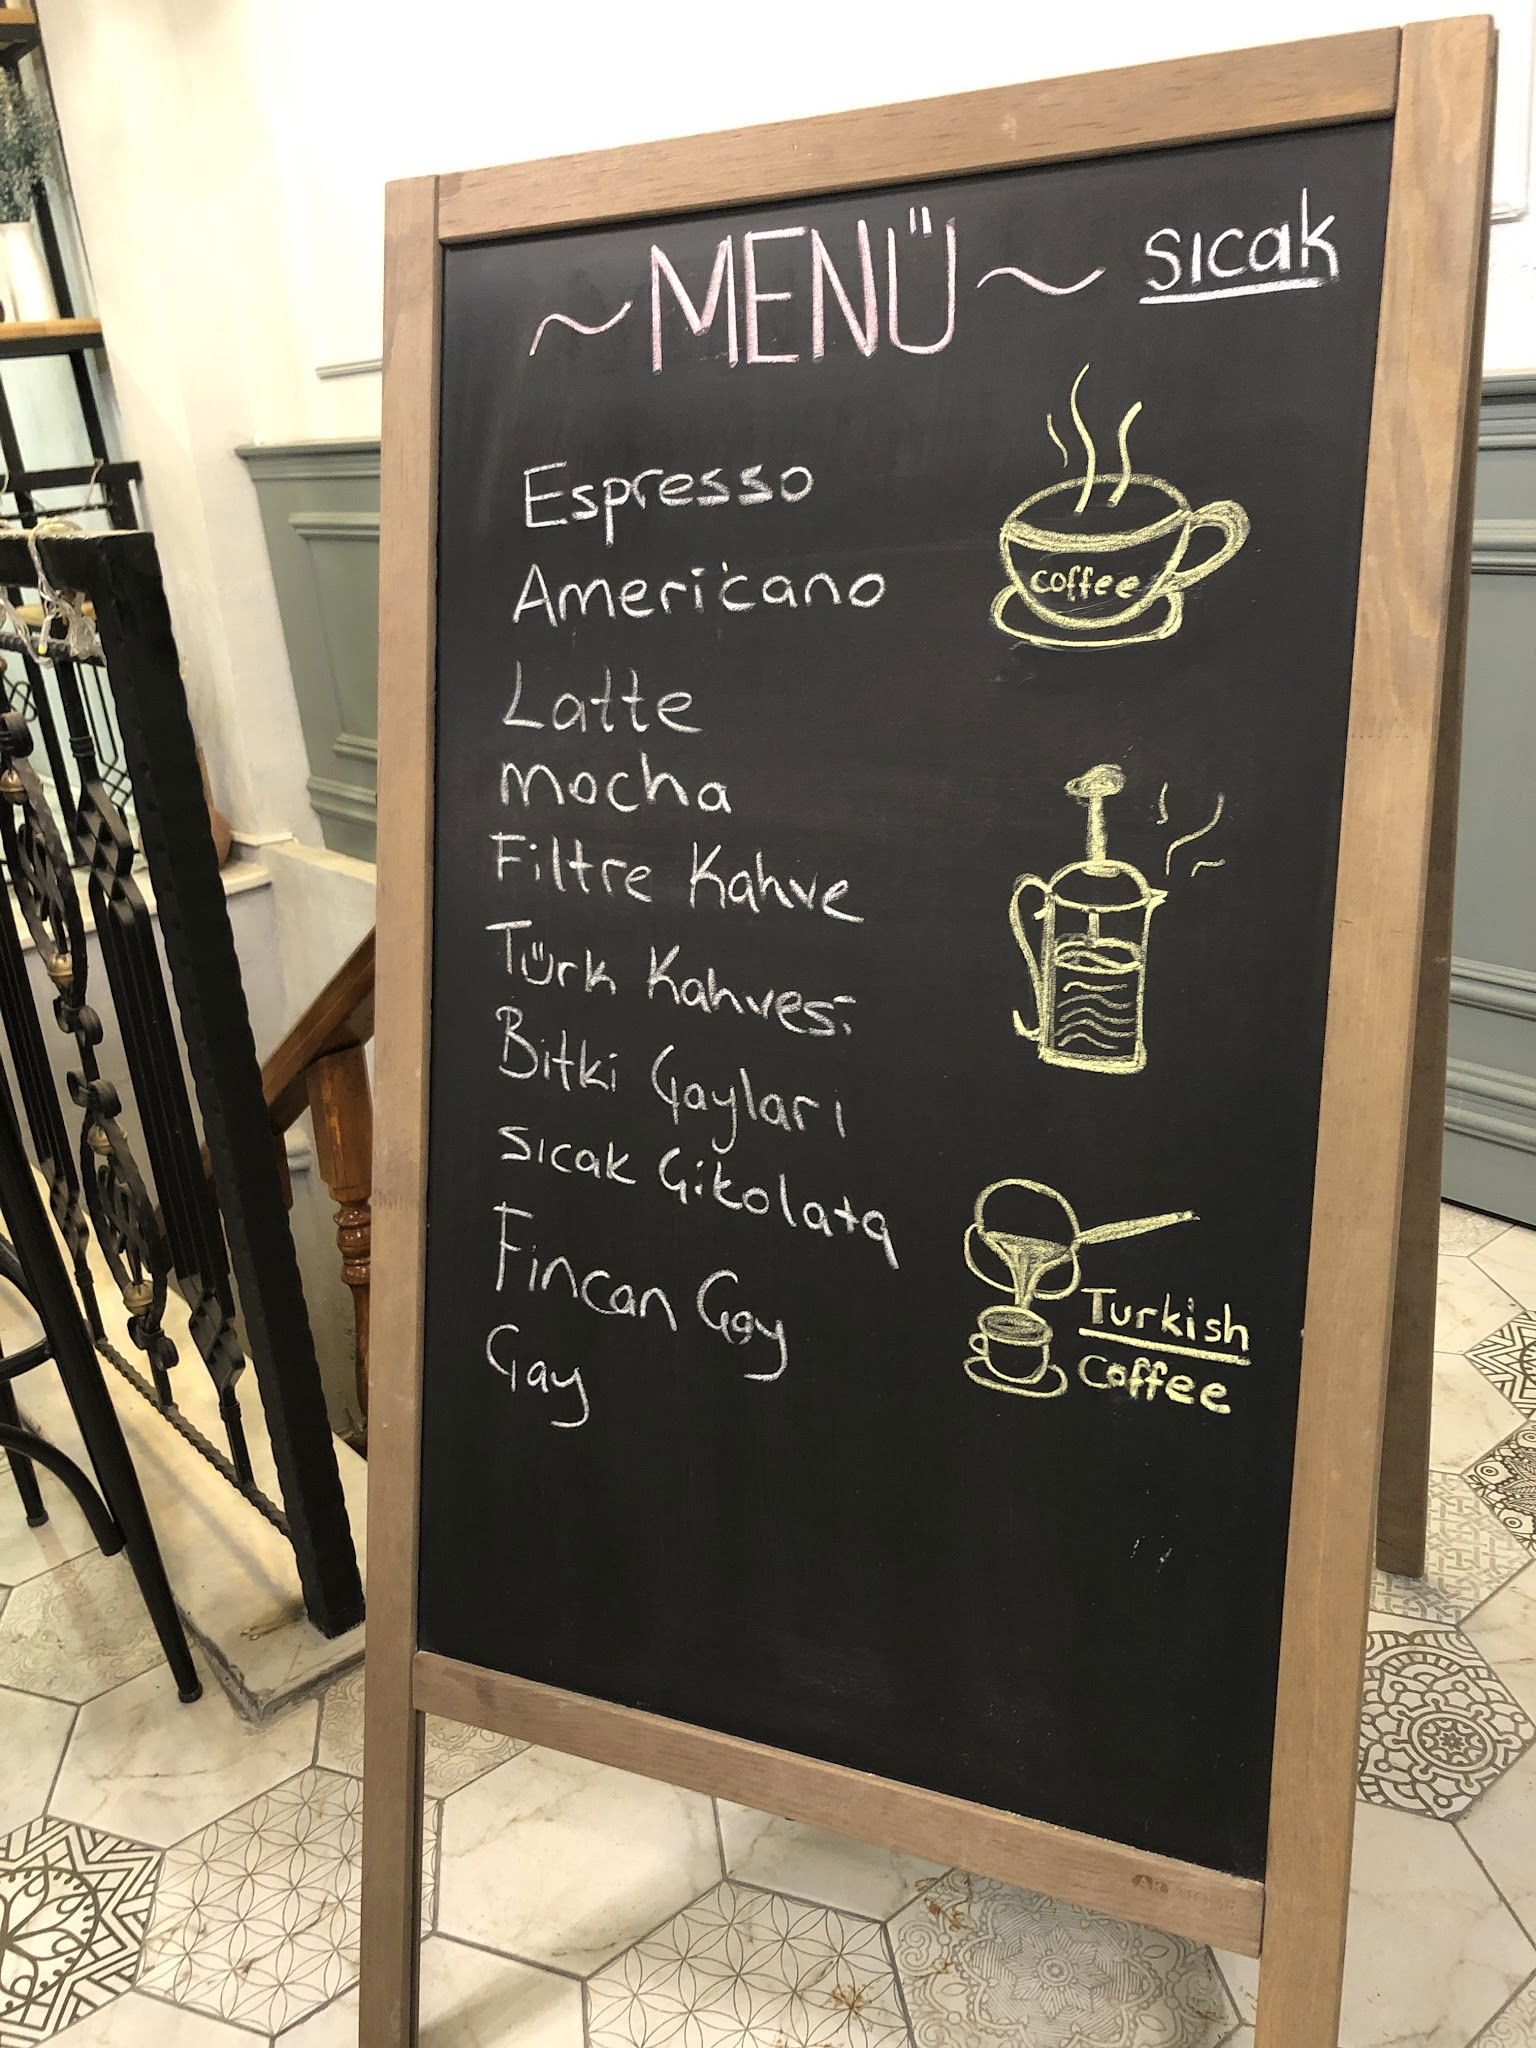 ~MENÜ~ SICAK
Espresso
Americano
Latte
mocha
Filtre Kahve
Türk Kahvesi
Bitki Çayları
sıcak Çikolata
Fincan Çay
Çay
coffee
Turkish
coffee